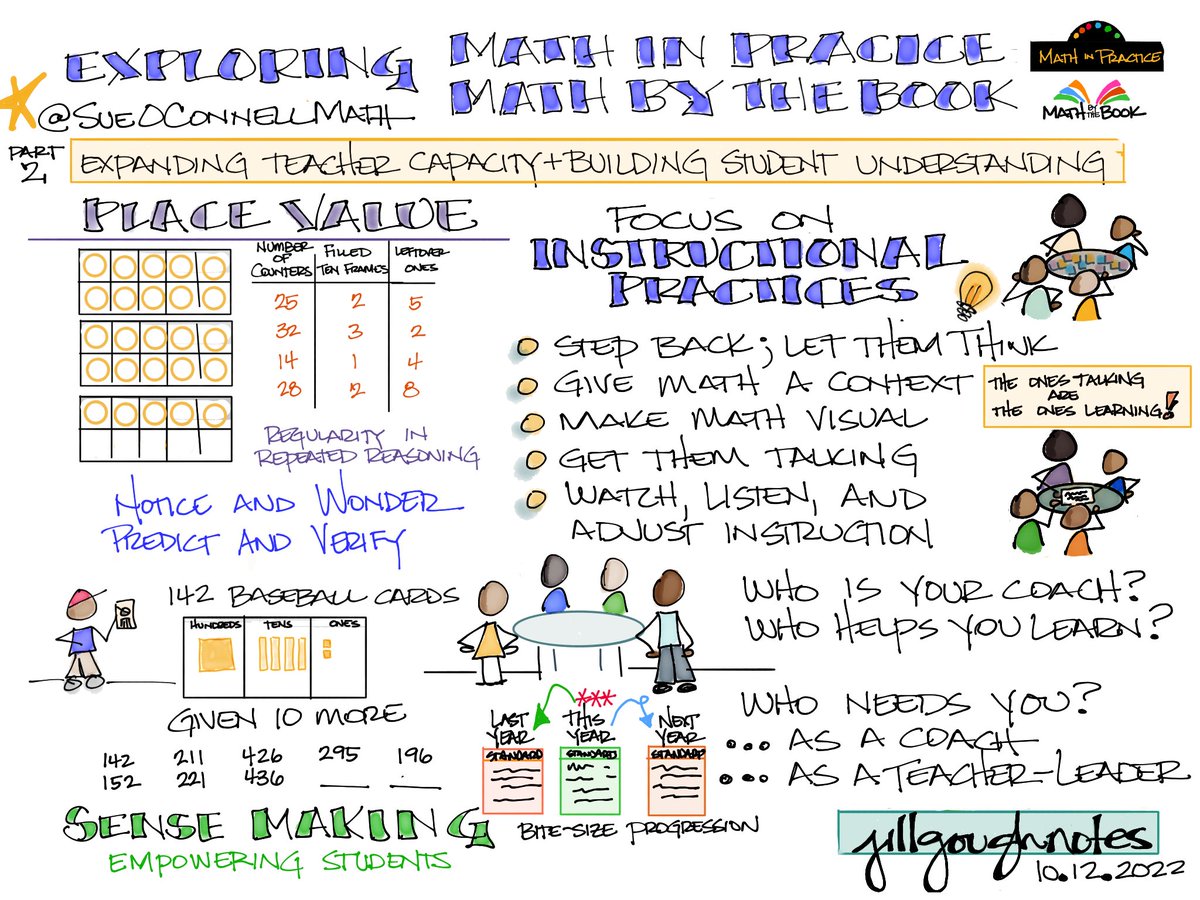 EXPLORING
MATH IN PRACICE
MATH BY THE BOOK
MATH IN PRACTICE
MATH BY THE BOOK
@SUEOCONNELLMATH
PART
2
EXPANDING TEACHER CAPACITY + BUILDING STUDENT UNDERSTANDING
PLACE VALUE
NUMBER OF COUNTERS FILLED TEN FRAMES LEFTOVER ONES
25 2 5
32 3 2
14 1 4
28 2 8
REGULARITY IN
REPEATED REASONING
NOTICE AND WONDER
PREDICT AND VERIFY
FOCUS ON
INSTRUCTIONAL
PRACTICES
STEP BACK; LET THEM THINK
GIVE MATH A CONTEXT
MAKE MATH VISUAL
GET THEM TALKING
WATCH, LISTEN, AND
ADJUST INSTRUCTION
THE ONES TALKING
ARE
THE ONES LEARNING!
142 BASEBALL CARDS
HUNDREDS TENS ONES
GIVEN 10 MORE
142 211 426 295 196
152 221 436 ___ ___
SENSE MAKING
EMPOWERING STUDENTS
LAST YEAR THIS YEAR NEXT YEAR
STANDARD STANDARD STANDARD
BITE-SIZE PROGRESSION
WHO IS YOUR COACH?
WHO HELPS YOU LEARN?
WHO NEEDS YOU?
... AS A COACH
... AS A TEACHER-LEADER
jillgoughnotes
10.12.2022